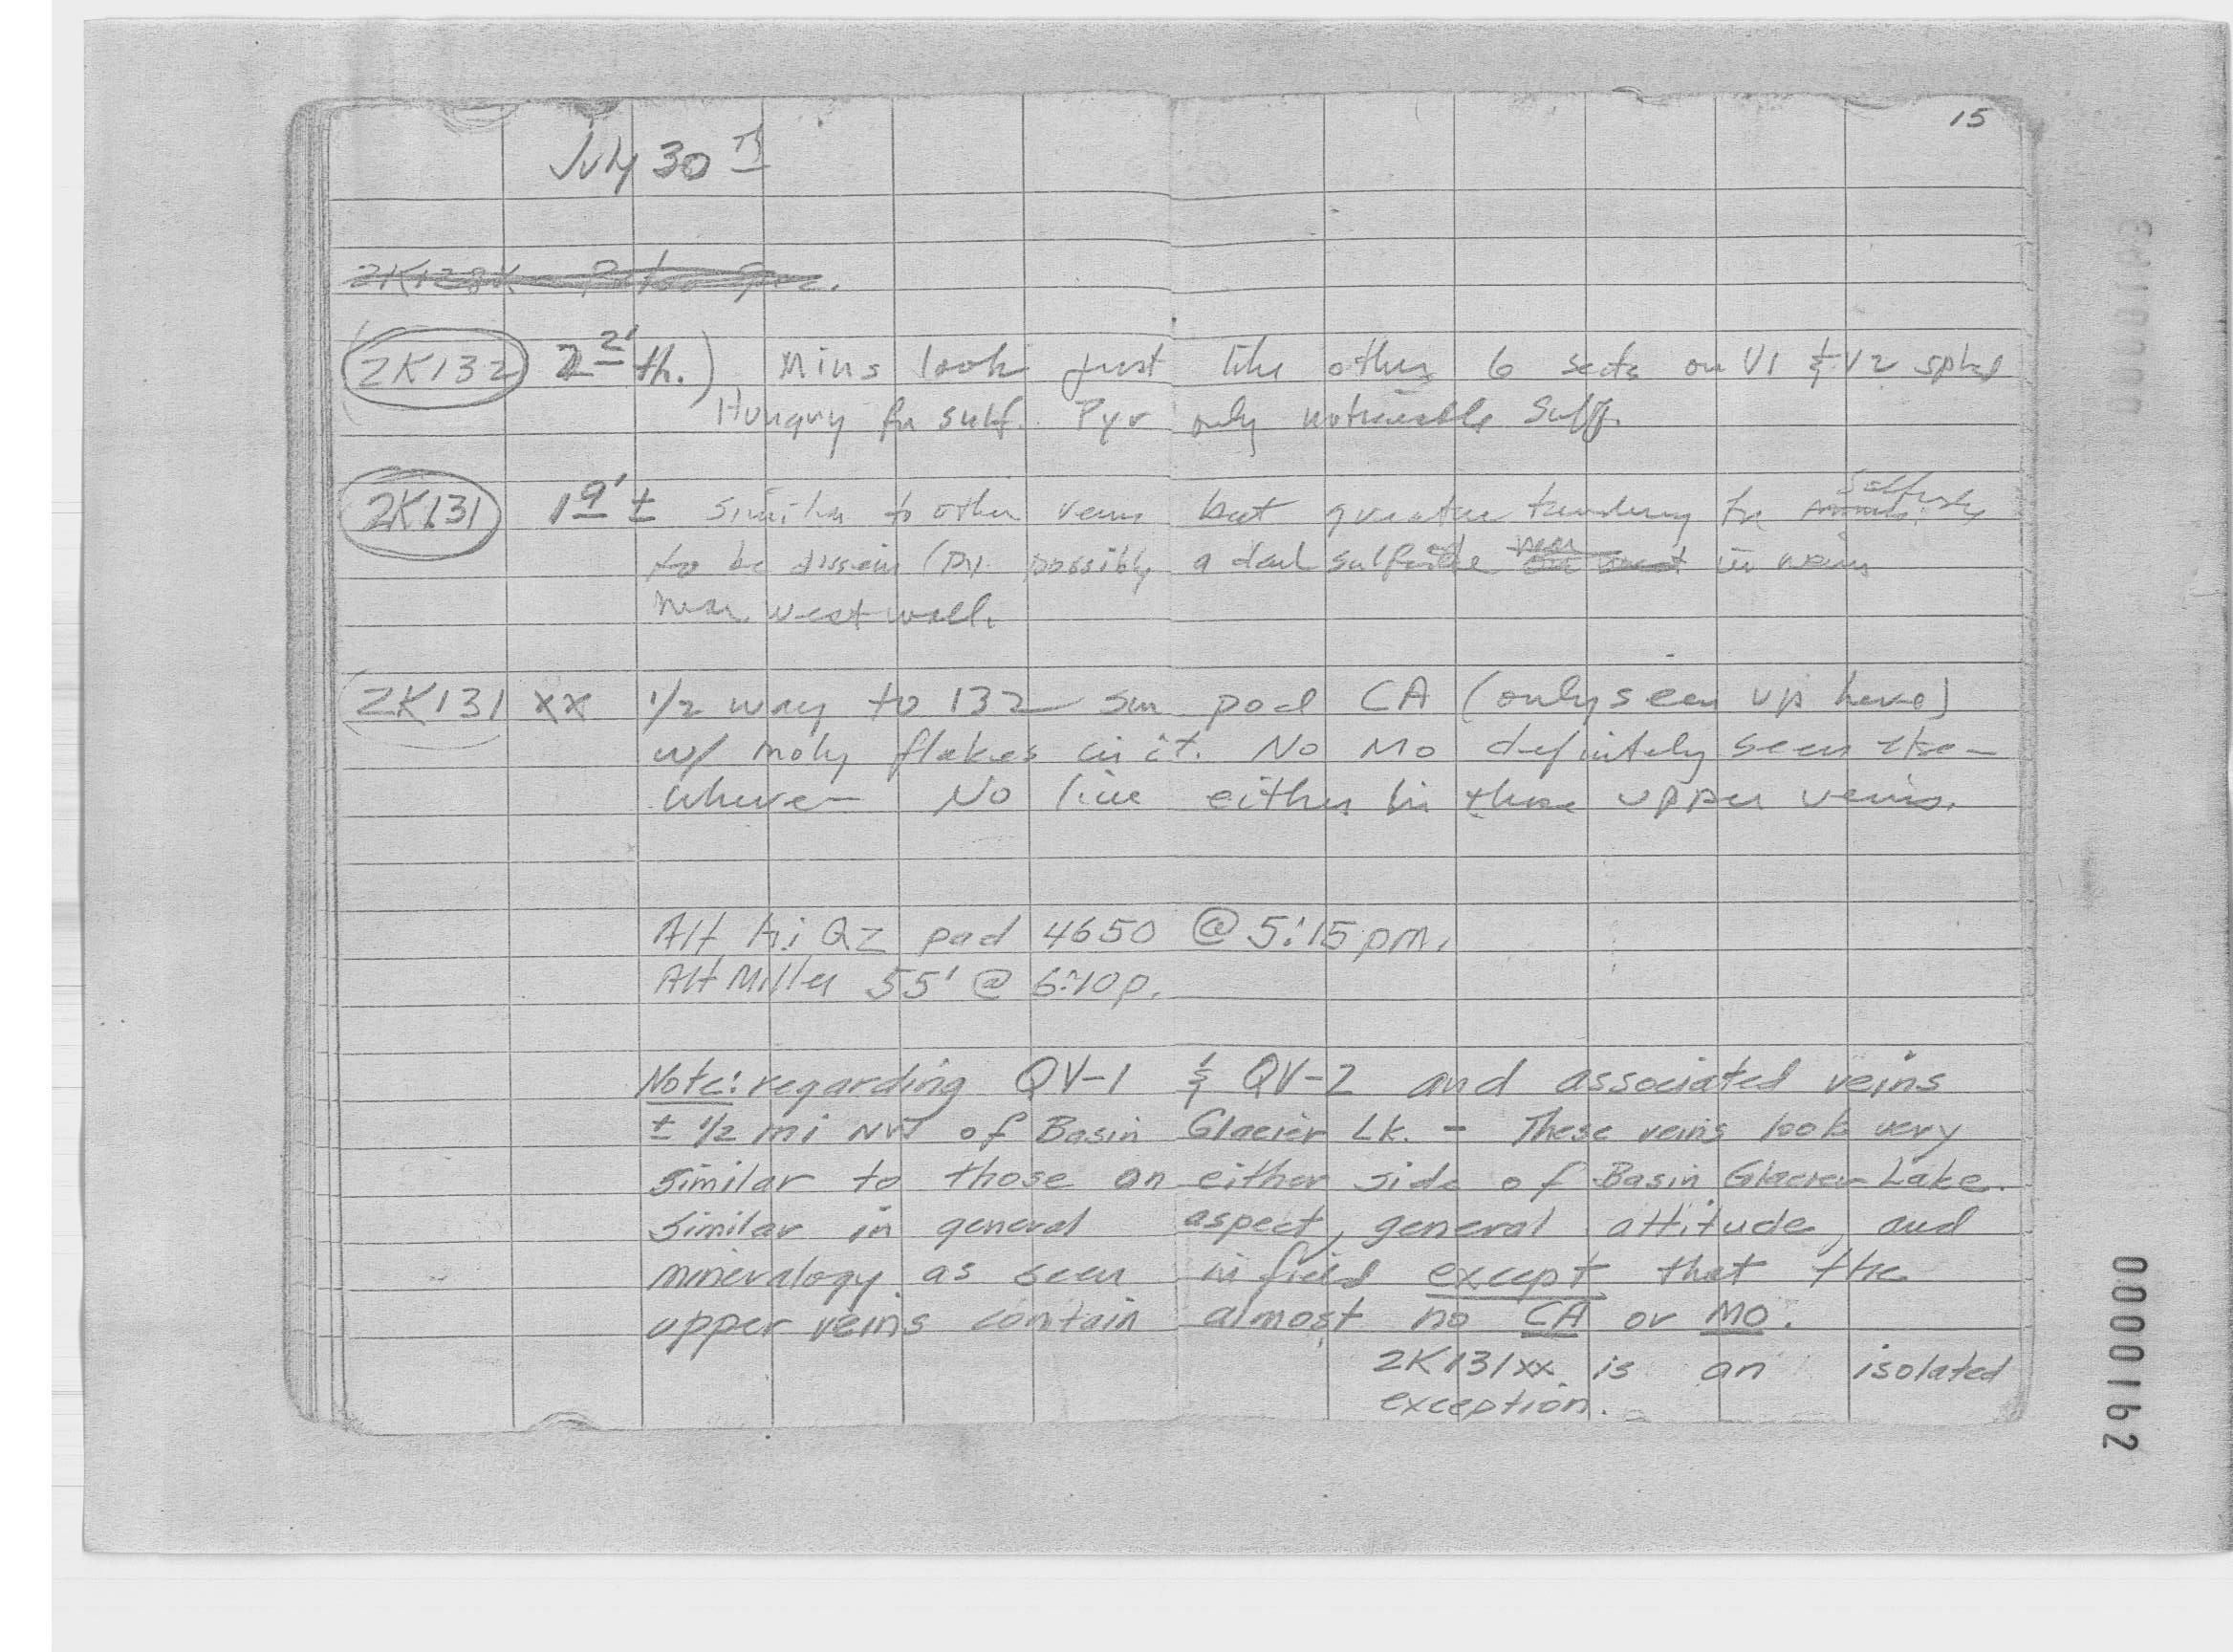 15
July 30 TH
2K132 2 2' th.) Mins look just like other 6 sects on V1 & V2 spld
Hungry for sulf. Pyr only noticeable sulf.
2K131 1 9' ± Similar to other veins but greater tendency for sulfides
to be dissem (py. possibly a dark sulfide in vein
near west wall.
2K131 xx 1/2 way to 132 sm pod CA (only seen up here)
w/ moly flakes in it. No Mo definitely seen else-
where - No lim either in these upper veins.
Alt hi QZ pad 4650 @ 5:15 pm.
Alt Miller 55' @ 6:10p.
Note: regarding QV-1 & QV-2 and associated veins
± 1/2 mi NW of Basin Glacier Lk. - These veins look very
similar to those on either side of Basin Glacier Lake.
Similar in general aspect, general attitude, and
mineralogy as seen in field except that the
upper veins contain almost no CA or MO.
2K131xx is an isolated
exception.
0000162